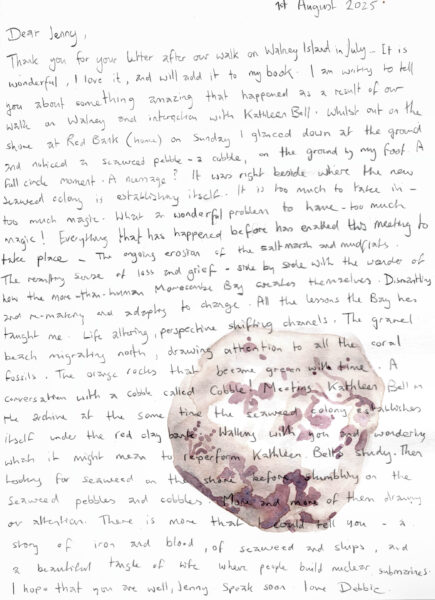 1st August 2025.
Dear Jenny,
Thank you for your letter after our walk on Walney Island in July. It is
wonderful, I love it, and will add it to my book. I am writing to tell
you about something amazing that happened as a result of our
walk on Walney and interaction with Kathleen Bell. Whilst out on the
shore at Red Bank (home) on Sunday I glanced down at the ground
and noticed a seaweed pebble - a cobble, on the ground by my foot. A
full circle moment. A message? It was right beside where the new
seaweed colony is establishing itself. It is too much to take in -
too much magic. What a wonderful problem to have - too much
magic! Everything that has happened before has enabled this meeting to
take place - The ongoing erosion of the saltmarsh and mudflats.
The resulting sense of loss and grief - side by side with the wonder of
how the more-than-human Morecambe Bay creates themselves. Dismantling
and re-making and adapting to change. All the lessons the Bay has
taught me. Life altering, perspective shifting channels. The gravel
beach migrating north, drawing attention to all the coral
fossils. The orange rocks that became green with time. A
conversation with a cobble called Cobble. Meeting Kathleen Bell in
the archive at the same time the seaweed colony establishes
itself under the red clay bank. Walking with you and wondering
what it might mean to reperform Kathleen Bell's study. Then
looking for seaweed on the shore before stumbling on the
seaweed pebbles and cobbles. More and more of them drawing
our attention. There is more that I could tell you - a
story of iron and blood, of seaweed and ships, and
a beautiful tangle of life where people build nuclear submarines.
I hope that you are well, Jenny. Speak soon. Love Debbie.